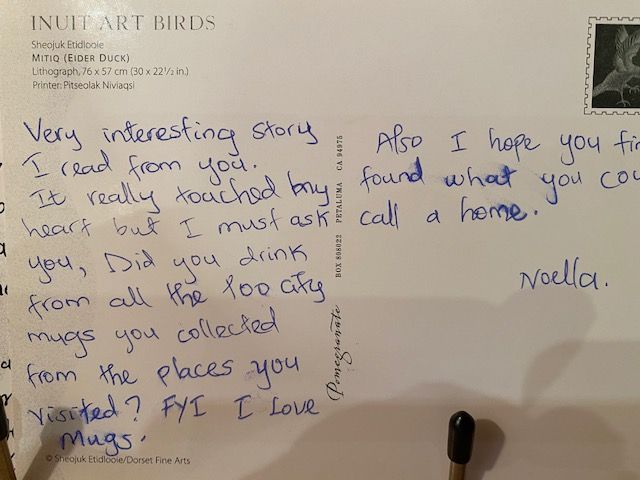 INUIT ART BIRDS
Sheojuk Etidlooie
MITIQ (EIDER DUCK)
Lithograph, 76 x 57 cm (30 x 22 1/2 in.)
Printer: Pitseolak Niviaqsi
Very interesting story
I read from you.
It really touched my
heart but I must ask
you, Did you drink
from all the 100 city
mugs you collected
from the places you
visited? FYI I Love
Mugs.
© Sheojuk Etidlooie/Dorset Fine Arts
Pomegranate BOX 808022 PETALUMA CA 94975
Also I hope you
found what you
call a home.
Noella.